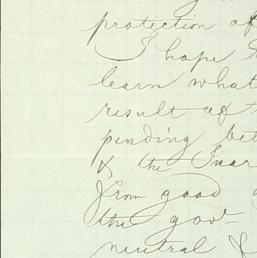 protection of
I hope
learn what
result of
pending bet
& the
from good
the gov-
neutral &